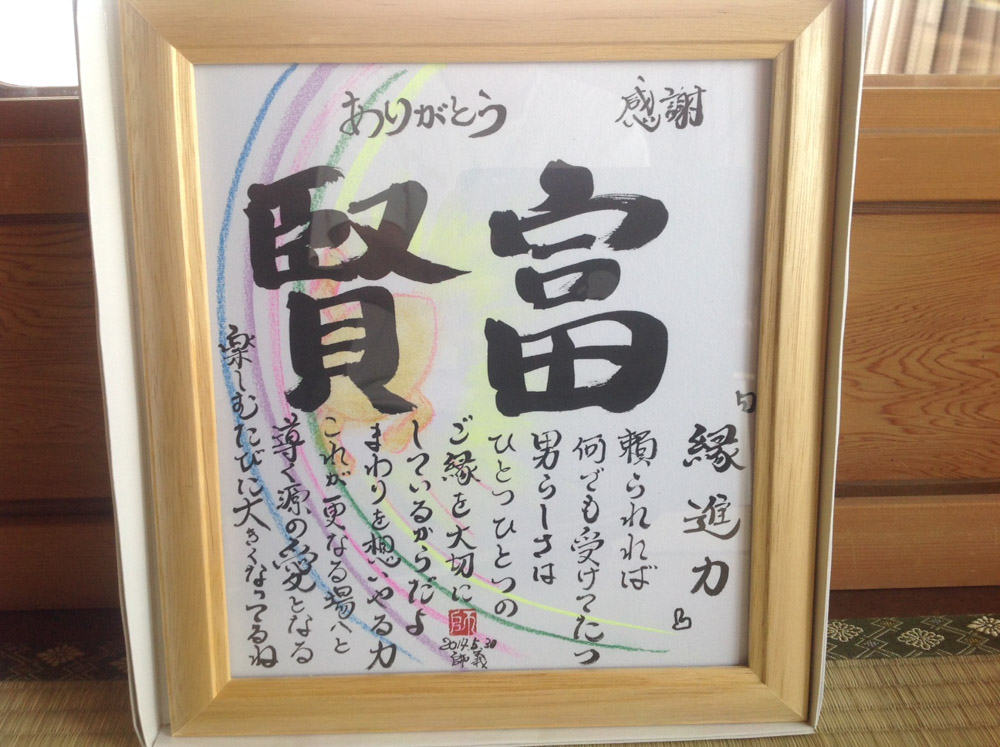 感謝
ありがとう
富賢
『縁進力』
頼られれば
何でも受けてたつ
男らしさは
ひとつひとつの
ご縁を大切に
しているからだよ
まわりを想いやる力
これが更なる場へと
導く源の愛となる
楽しむたびに大きくなってるね
師
2014.5.30
師義